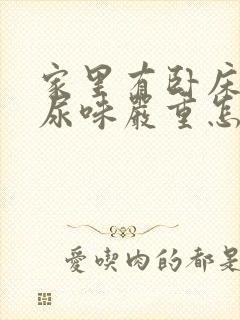 家里有卧床
尿味严重怎
爱吃肉的都是